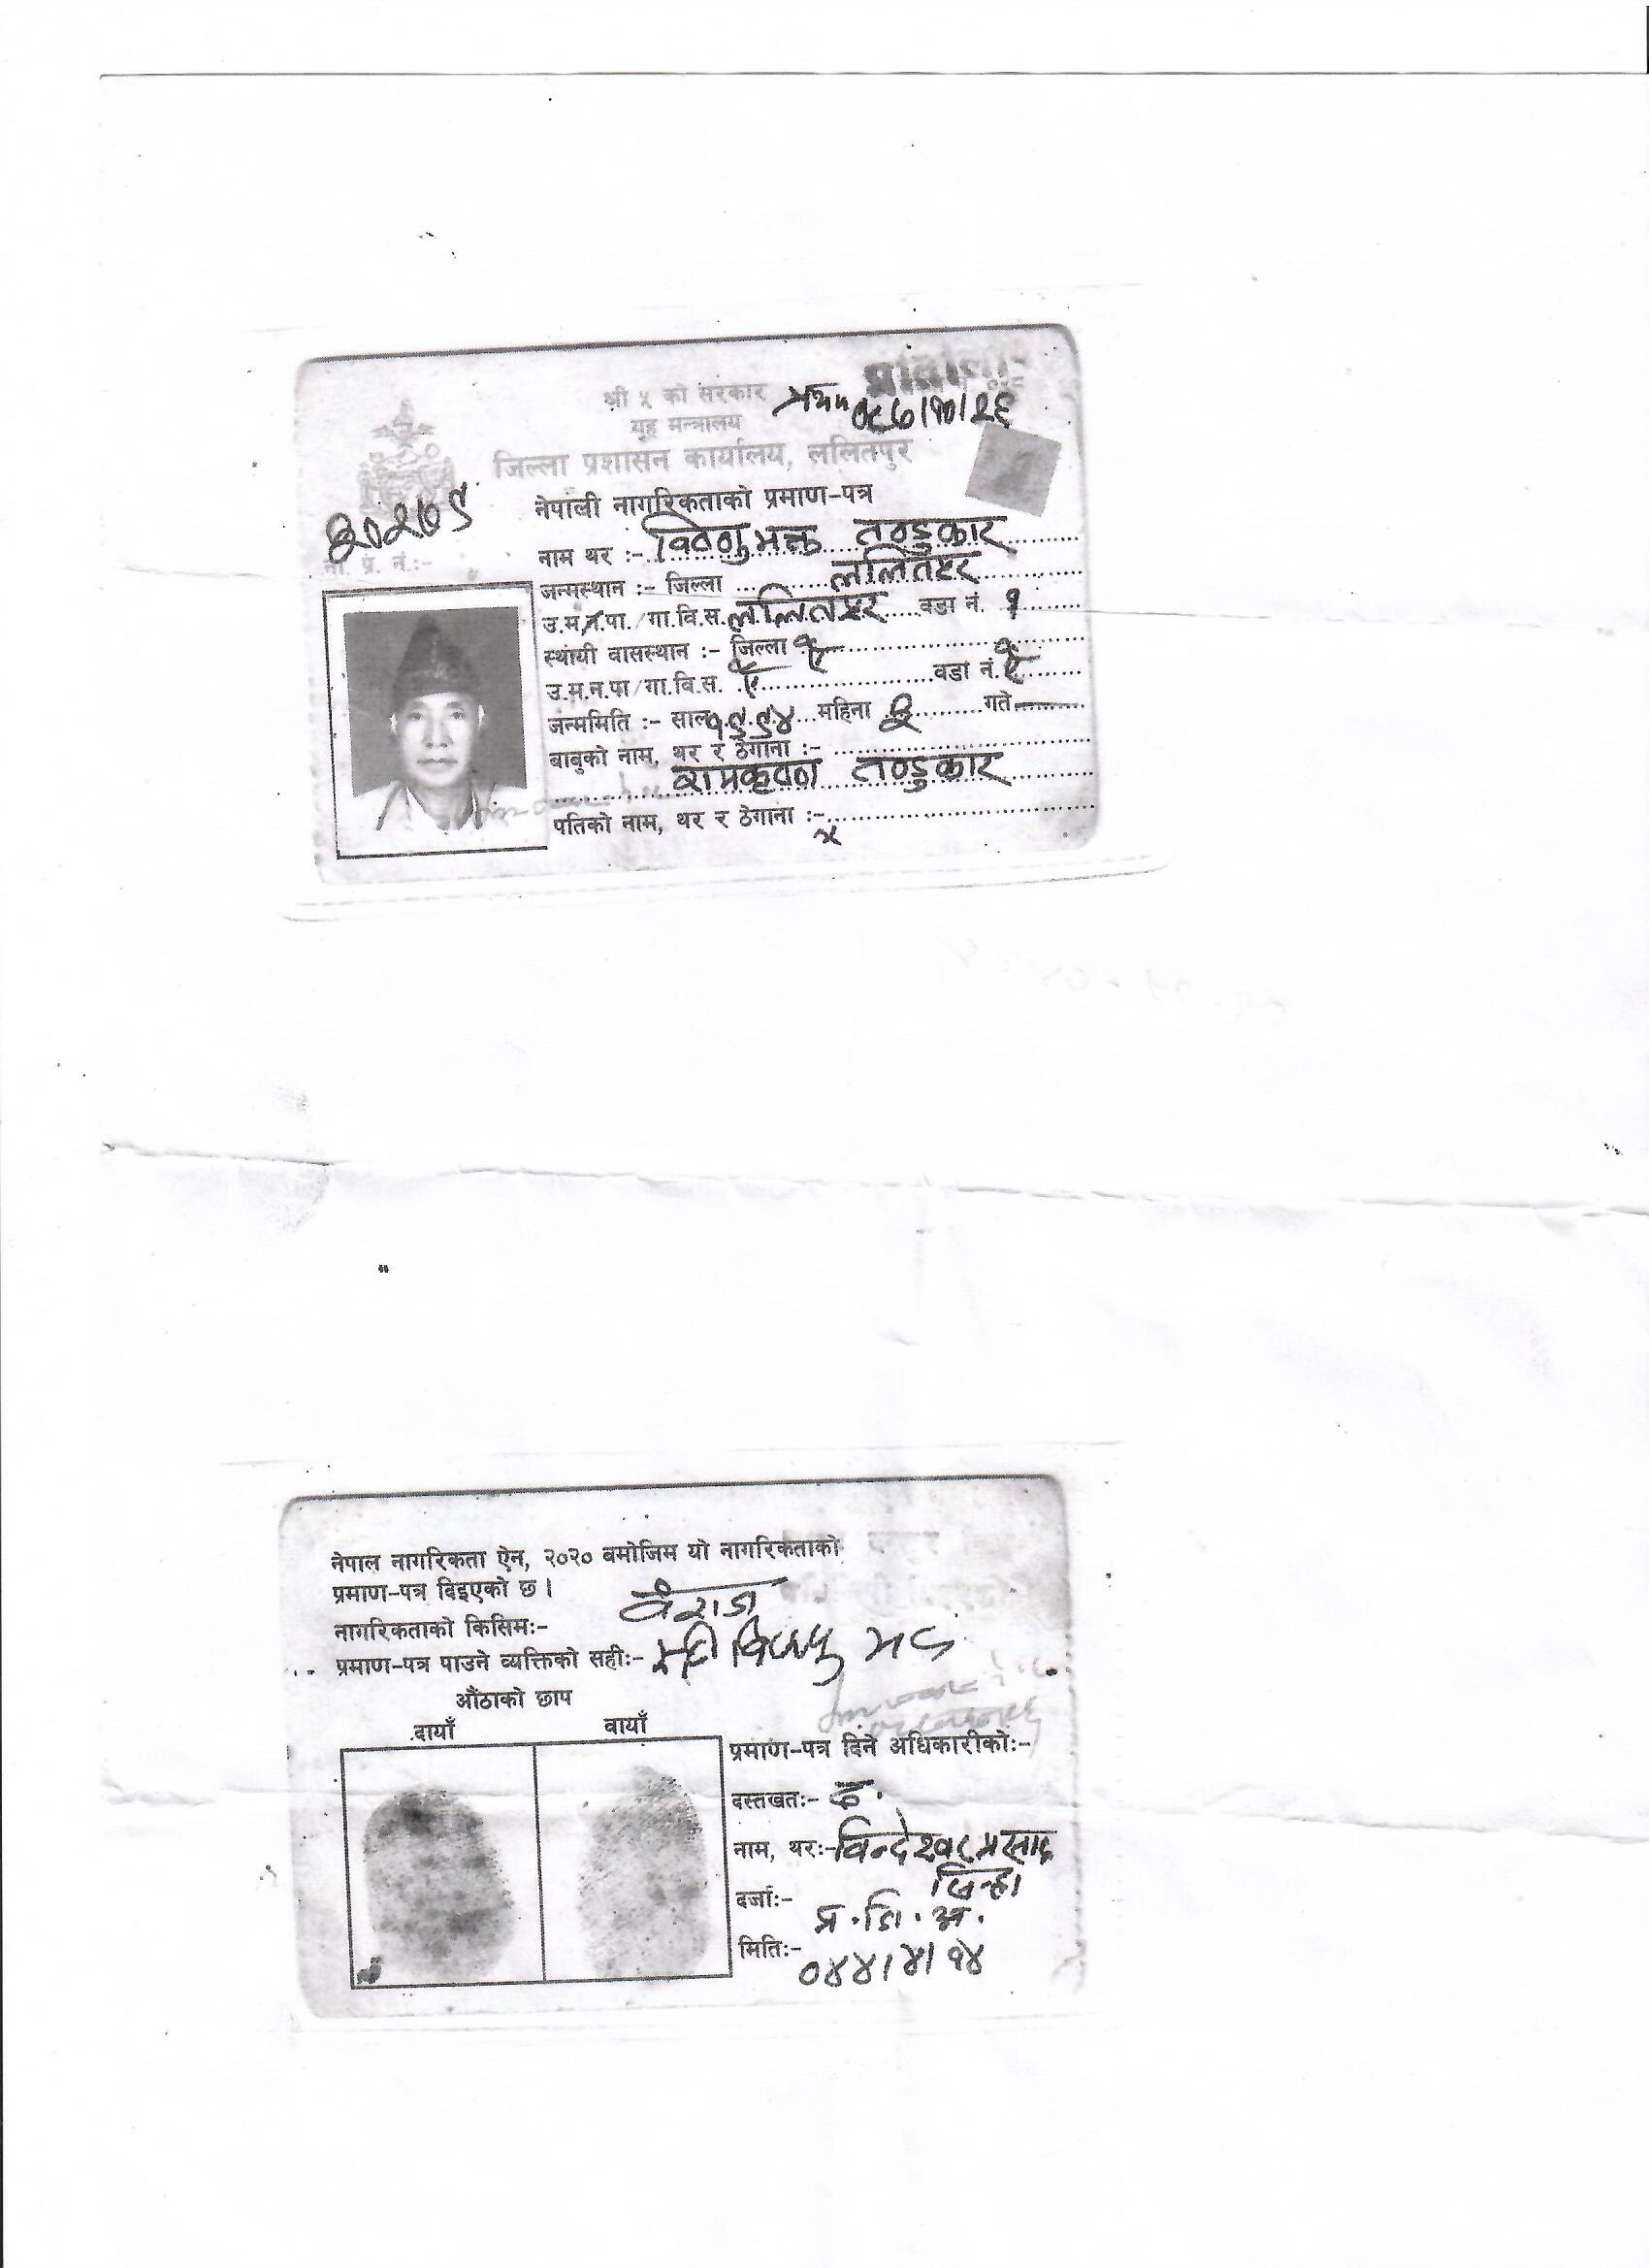 प्रतिलिपि
श्री ५ को सरकार
गृह मन्त्रालय
जिल्ला प्रशासन कार्यालय, ललितपुर
नेपाली नागरिकताको प्रमाण-पत्र
ना. प्र. नं.:-
नाम थर :- विष्णु भक्त तण्डुकार
जन्मस्थान :- जिल्ला ललितपुर
उ.म.न.पा./गा.वि.स. ललितपुर वडा नं. १
स्थायी वासस्थान :- जिल्ला ऐ
उ.म.न.पा/गा.वि.स. ऐ वडा नं. ऐ
जन्ममिति :- साल १९९४ महिना गते
बाबुको नाम, थर र ठेगाना :-
रामकृष्ण तण्डुकार
पतिको नाम, थर र ठेगाना :- x
नेपाल नागरिकता ऐन, २०२० बमोजिम यो नागरिकताको
प्रमाण-पत्र दिइएको छ।
नागरिकताको किसिमः- वंशज
प्रमाण-पत्र पाउने व्यक्तिको सहीः- सही विष्णु भक्त
औंठाको छाप
दायाँ बायाँ
प्रमाण-पत्र दिने अधिकारीकोः-
दस्तखतः- द.
नाम, थरः- विन्देश्वर प्रसाद
सिन्हा
दर्जाः- प्र.जि.अ.
मितिः- ०४४/४/१४